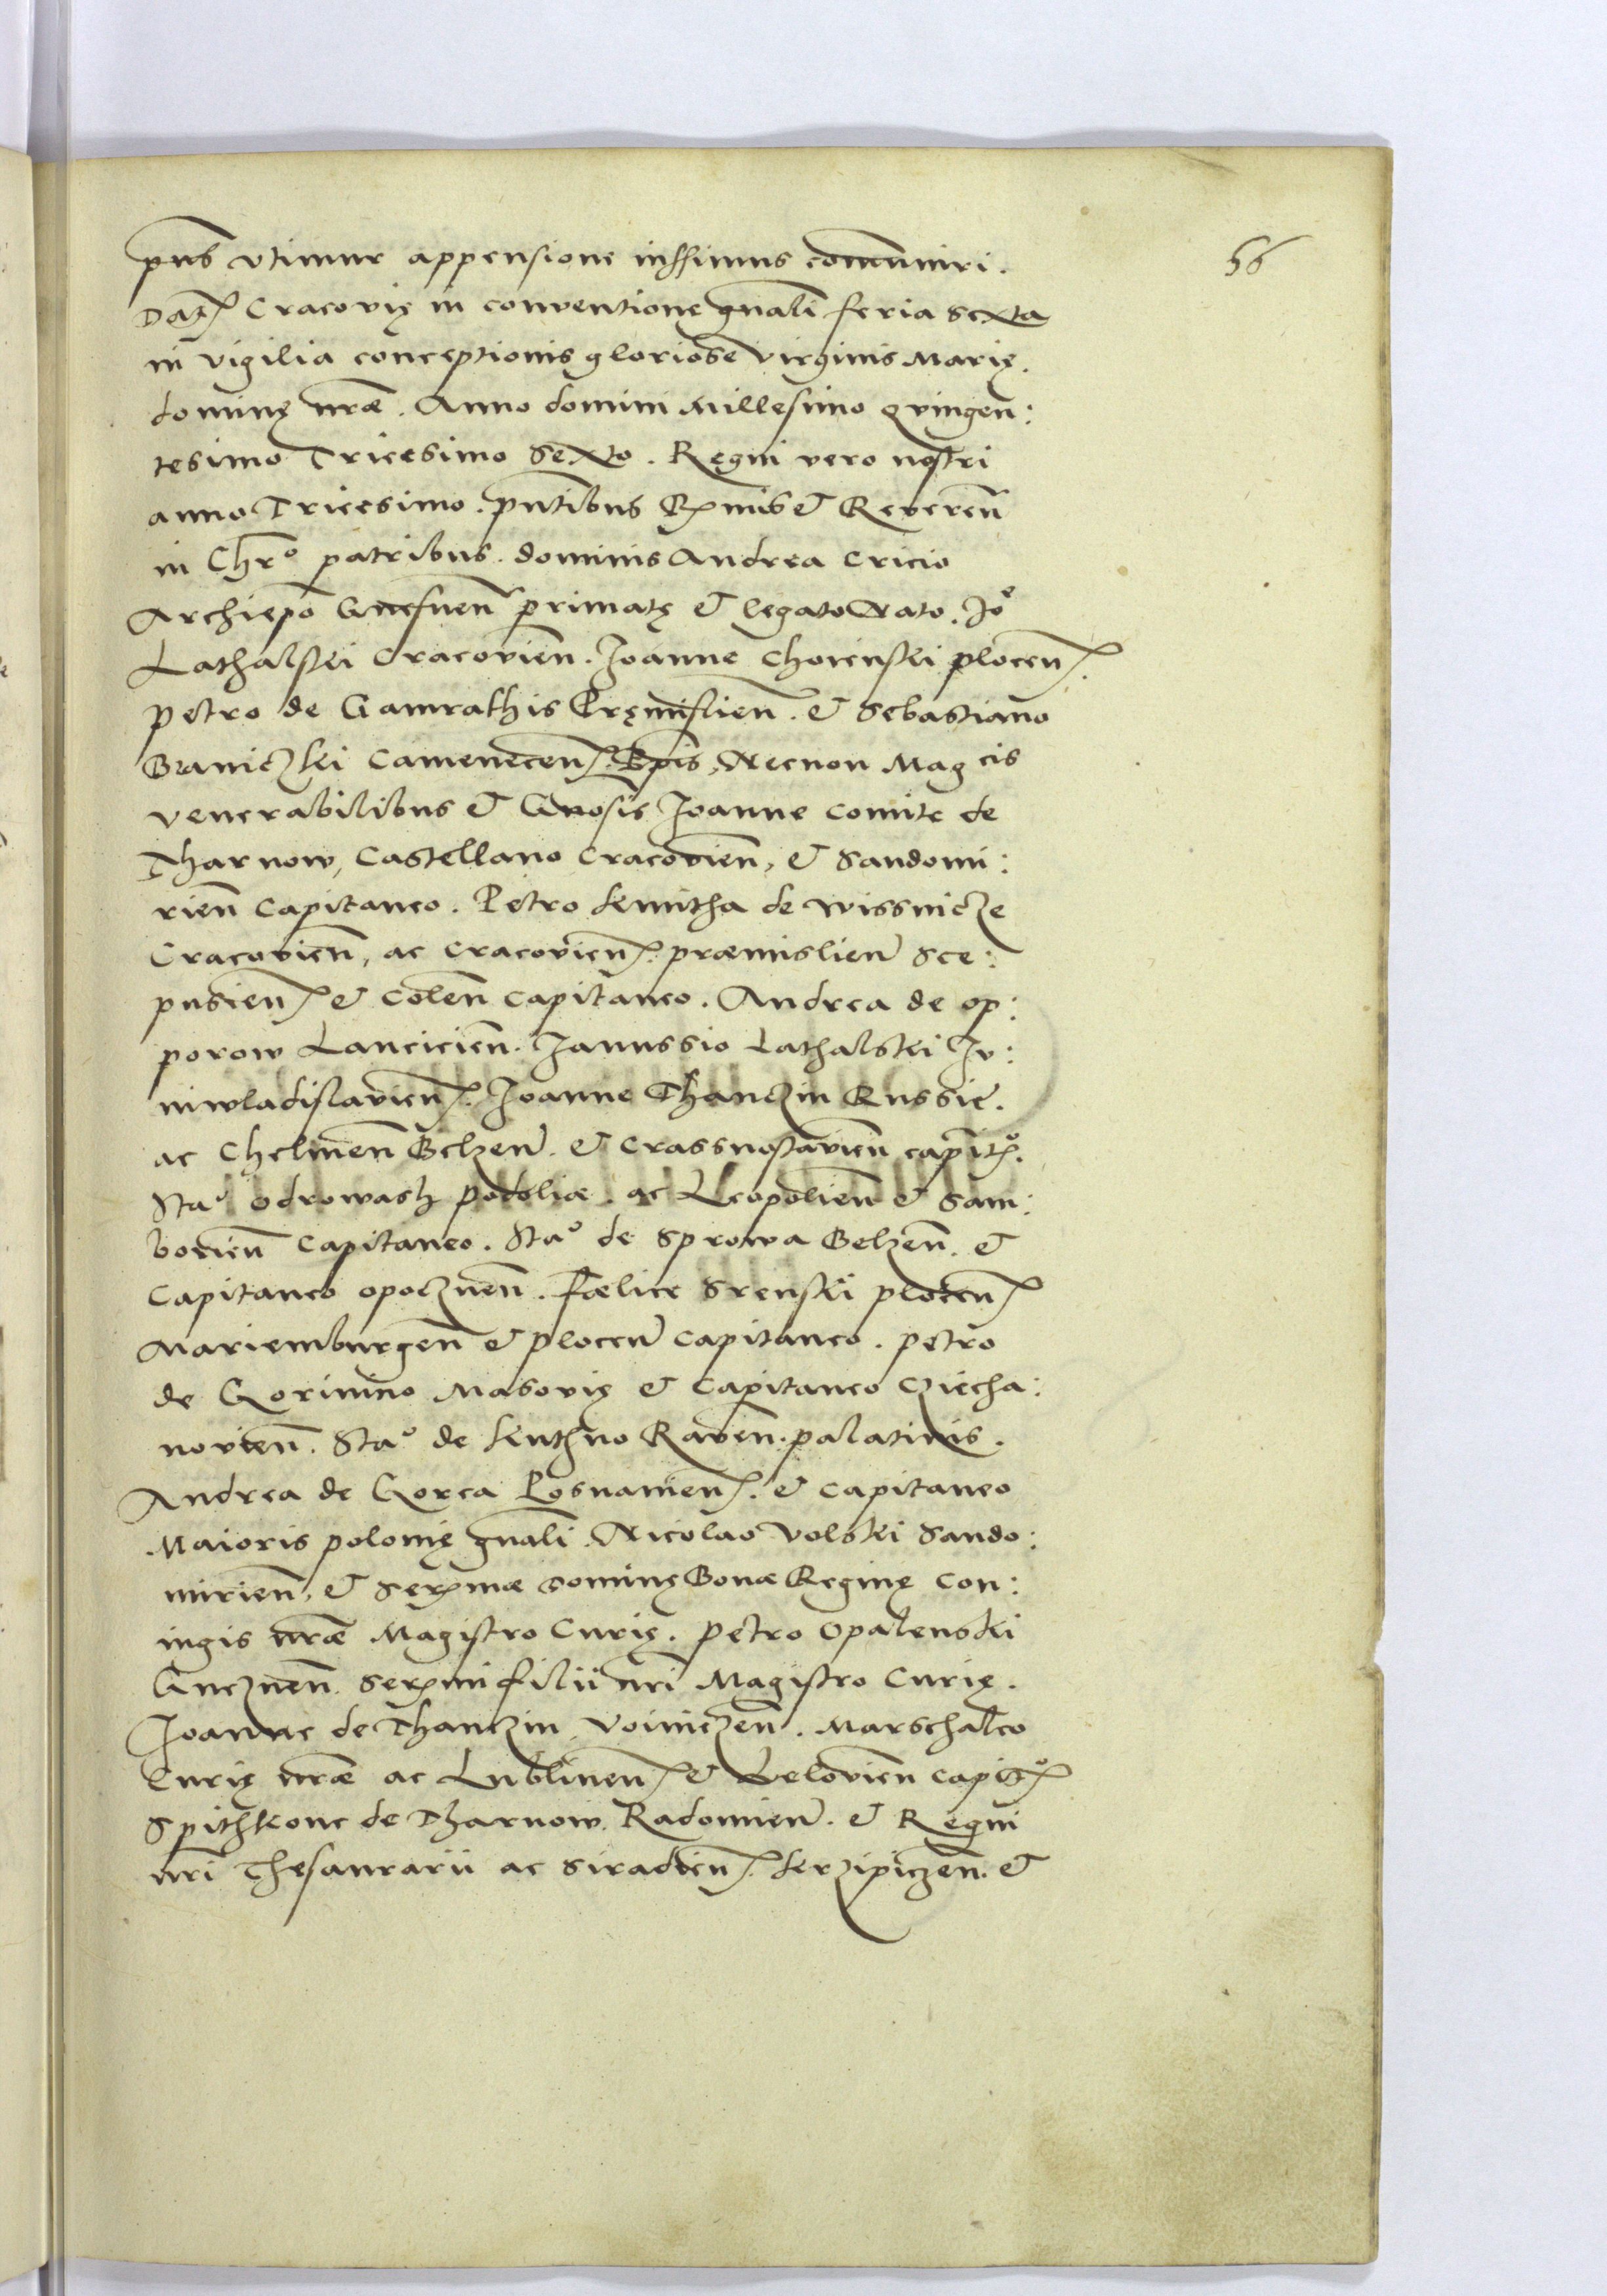 pn̄s vtimur appensione iussimus com̄uniri. 56
Dat̄ Cracovię in conventione gn̄ali feria sexta
in vigilia conceptionis gloriose virginis Marię.
dominę nr̄æ. Anno domini Millesimo qvingen:
tesimo Tricesimo Sexto. Regni vero nostri
anno Tricesimo. pn̄tibus Rmis et Reveren̄
in Chr̄o patribus. dominis Andrea Cricio
Archiep̄o Gnesnen̄ primatę et legato Nato. Joe
Lathalski Cracovien̄. Joanne Choienski plocen̄.
Petro de Gamrathis Pręmislien̄. et Sebastiano
Braniczki Camenecen̄. Ep̄is, Necnon Magcis
venerabilibus et Gnosis Joanne comite de
Tharnow, Castellano Cracovien̄, et Sandomi:
rien̄ Capitaneo. Petro kmitha de wissnicze
Cracovien̄, ac Cracovien̄. præmislien̄ Sce:
pusien̄ et Colen̄ Capitaneo. Andrea de op:
porow Lancicien̄. Janussio Lathalski Ju:
niwladislavien̄. Joanne Thanczin Russie.
ac Chelmen̄ Belzen̄. et Crassnostavien̄ capit̄o.
Stao odrowasch podoliæ. ac Leopolien̄ et Sam:
borien̄ Capitaneo. Stao de Sprowa Belzen̄. et
Capitaneo opocznen̄. Fœlice Srenski plocen̄
Mariemburgen̄ et plocen̄ Capitaneo. petro
de Gorinino Masovię et Capitaneo Cziecha:
novien̄. Stao de kuthno Raven̄. palatinis.
Andrea de Gorca Posnanien̄. et Capitaneo
Maioris polonię gn̄ali. Nicolao Volski Sando:
mirien̄, et Sermæ dominę Bonæ Reginę Con:
iugis nr̄æ Magistro Curię. Petro Opalenski
Gneznen̄. Sermi filii nr̄i Magistro Curię.
Joanne de Thanczin Voiniczen̄. Marschalco
Curię nr̄æ ac Lublinen̄ et Lelovien̄ capit̄o
Spithkone de Tharnow. Radomien̄. et Regni
nr̄i Thesaurarii ac Siradien̄. krzipiczen̄. et